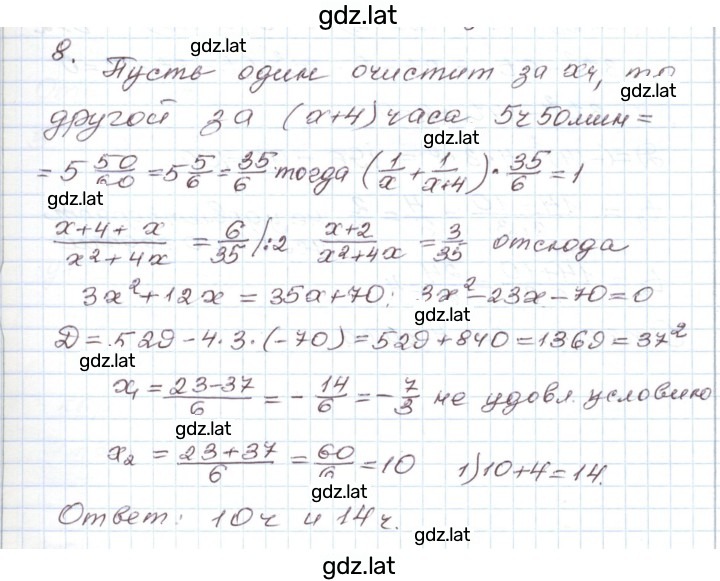 gdz.lat
gdz.lat
8. Пусть один очистит за x ч, то
gdz.lat
другой за (x+4) часа 5ч 50мин =
gdz.lat
= 5 50/60 = 5 5/6 = 35/6 тогда (1/x + 1/(x+4)) · 35/6 = 1
gdz.lat
(x+4+x)/(x²+4x) = 6/35 /:2 (x+2)/(x²+4x) = 3/35 отсюда
3x²+12x = 35x+70; 3x²-23x-70=0
gdz.lat
D = 529-4·3·(-70)=529+840=1369=37²
gdz.lat
x₁ = (23-37)/6 = -14/6 = -7/3 не удовл. условию
gdz.lat
x₂ = (23+37)/6 = 60/6 = 10 1) 10+4=14.
gdz.lat
Ответ: 10ч и 14ч.
gdz.lat
gdz.lat